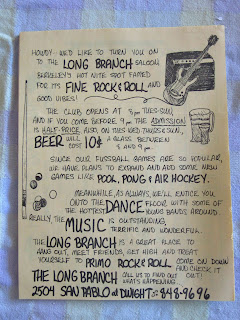 HOWDY - WE'D LIKE TO TURN YOU ON
TO THE LONG BRANCH SALOON,
BERKELEY'S HOT NITE SPOT FAMED
FOR ITS FINE ROCK & ROLL AND
GOOD VIBES!
THE CLUB OPENS AT 8 PM TUES-SUN,
AND IF YOU COME BEFORE 9 PM THE ADMISSION
IS HALF-PRICE. ALSO, ON TUES WED THURS & SUN,
BEER WILL COST 10¢ A GLASS BETWEEN 8 AND 9 PM.
SINCE OUR FUSSBALL GAMES ARE SO POPULAR,
WE HAVE PLANS TO EXPAND AND ADD SOME NEW
GAMES LIKE POOL, PONG & AIR HOCKEY.
MEANWHILE, AS ALWAYS, WE'LL ENTICE YOU
ONTO THE DANCE FLOOR WITH SOME OF
THE HOTTEST YOUNG BANDS AROUND.
REALLY, THE MUSIC IS OUTSTANDING,
TERRIFIC AND WONDERFUL.
THE LONG BRANCH IS A GREAT PLACE TO
HANG OUT, MEET FRIENDS, GET HIGH AND TREAT
YOURSELF TO PRIMO ROCK & ROLL. COME ON DOWN
AND CHECK IT OUT!
THE LONG BRANCH CALL US TO FIND OUT
WHAT'S HAPPENING...
2504 SAN PABLO at DWIGHT 848-9696